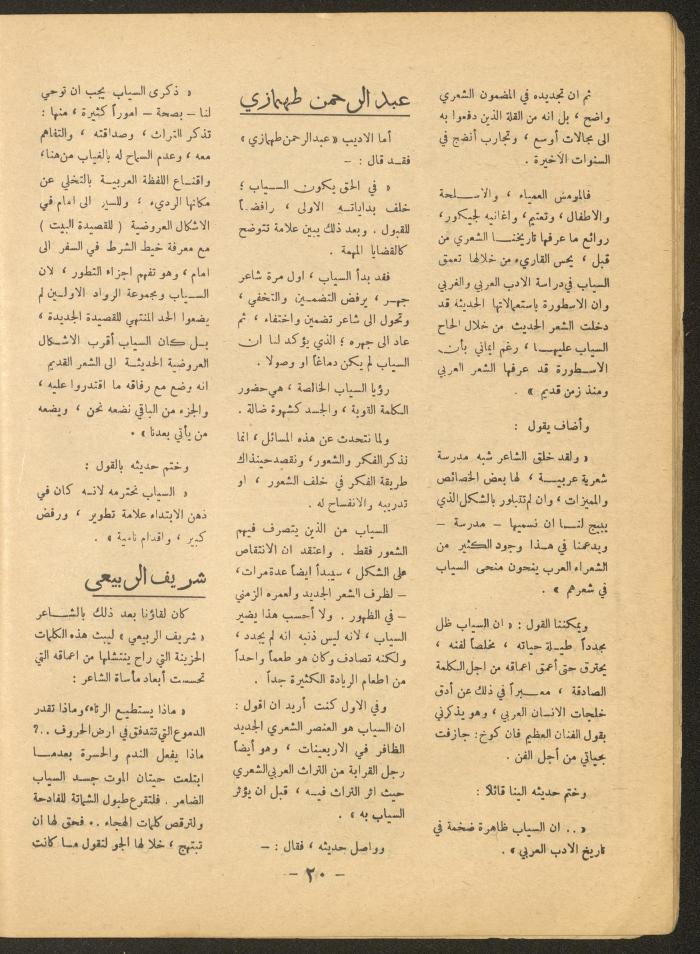 ثم ان تجديده في المضمون الشعري
واضح ، بل انه من القلة الذين دفعوا به
الى مجالات أوسع ، وتجارب أنضج في
السنوات الاخيرة .
فالمومس العمياء ، والاسلحة
والاطفال ، وتعتيم ، واغانيه لجيكور ،
روائع ما عرفها تاريخنا الشعري من
قبل ، يحس القاريء من خلالها تعمق
السياب في دراسة الادب العربي والغربي
وان الاسطورة باستعمالاتها الحديثه قد
دخلت الشعر الحديث من خلال الحاح
السياب عليها ، رغم ايماني بأن
الاسطورة قد عرفها الشعر العربي
ومنذ زمن قديم » .
وأضاف يقول :
« ولقد خلق الشاعر شبه مدرسة
شعرية عربية ، لها بعض الخصائص
والمميزات ، وان لم تتبلور بالشكل الذي
يبيح لنا ان نسميها - مدرسة -
ويدعمنا في هذا وجود الكثير من
الشعراء العرب ينحون منحى السياب
في شعرهم » .
ويمكننا القول : « ان السياب ظل
مجدداً طيلة حياته ، مخلصاً لفنه ،
يحترق حتى أعمق اعماقه من اجل الكلمة
الصادقة ، معبراً في ذلك عن أدق
خلجات الانسان العربي ، وهو يذكرني
بقول الفنان العظيم فان كوخ : جازفت
بحياتي من أجل الفن .
وختم حديثه الينا قائلاً :
« .. ان السياب ظاهرة ضخمة في
تاريخ الادب العربي » .
عبد الرحمن طهمازي
أما الاديب « عبدالرحمن طهمازي »
فقد قال : -
« في الحق يكون السياب ؛
خلف بداياته الاولى ، رافضاً
للقبول . وبعد ذلك يبين علامة تتوضح
كالقضايا المهمة .
فقد بدأ السياب ، اول مرة شاعر
جهر ، يرفض التضمين والتخفي ،
وتحول الى شاعر تضمين واختفاء ، ثم
عاد الى جهره ؛ الذي يؤكد لنا ان
السياب لم يكن دماغاً او وصولا .
رؤيا السياب الخالصة ، هي حضور
الكلمة القوية ، والجسد كشهوة ضالة .
ولما نتحدث عن هذه المسائل ، انما
نذكر الفكر والشعور، ونقصد حينذاك
طريقة الفكر في خلف الشعور ، او
تدريبه والانفساح له .
السياب من الذين يتصرف فيهم
الشعور فقط . واعتقد ان الانتقاص
على الشكل ، سيبدأ ايضاً عدة مرات،
- لظرف الشعر الجديد ولعمره الزمني
- في الظهور . ولا أحسب هذا يضير
السياب ، لانه ليس ذنبه انه لم يجدد ،
ولكنه تصادف وكان هو طعماً واحداً
من اطعام الريادة الكثيرة جداً .
وفي الاول كنت أريد ان اقول :
ان السياب هو العنصر الشعري الجديد
الظافر في الاربعينات ، وهو أيضاً
رجل القرابة من التراث العربي الشعري
حيث اثر التراث فيه ، قبل ان يؤثر
السياب به » .
وواصل حديثه ، فقال : -
« ذكرى السياب يجب ان توحي
لنا - بصحة - اموراً كثيرة ، منها :
تذكر التراث ، وصداقته ، والتفاهم
معه ، وعدم السماح له بالغياب من هنا،
واقناع اللفظة العربية بالتخلي عن
مكانها الرديء ؛ وللسير الى امام في
الاشكال العروضية ( للقصيدة البيت )
مع معرفة خيط الشرط في السفر الى
امام ، وهو تفهم اجزاء التطور ، لان
السياب ومجموعة الرواد الاولين لم
يضعوا الحد المنتهي للقصيدة الجديدة ،
بل كان السياب أقرب الاشكال
العروضية الحديثة الى الشعر القديم
انه وضع مع رفاقه ما اقتدروا عليه ،
والجزء من الباقي نضعه نحن ، ويضعه
من يأتي بعدنا » .
وختم حديثه بالقول :
« السياب نحترمه لانه كان في
ذهن الابتداء علامة تطوير ، ورفض
كبير ، واقدام نامية » .
شريف الربيعي
كان لقاؤنا بعد ذلك بالشاعر
« شريف الربيعي » ليبث هذه الكلمات
الحزينة التي راح ينتشلها من اعماقه التي
تحسست أبعاد مأساة الشاعر :
« ماذا يستطيع الرثاء، وماذا تقدر
الدموع التي تتدفق في ارض الحروف ..؟
ماذا يفعل الندم والحسرة بعدما
ابتلعت حيتان الموت جسد السياب
الضامر . فلتقرع طبول الشماتة للفادحة
ولترقص كلمات الهجاء .. فحق لها ان
تبتهج ، خلا لها الجو لتقول ما كانت
- ٢٠ -